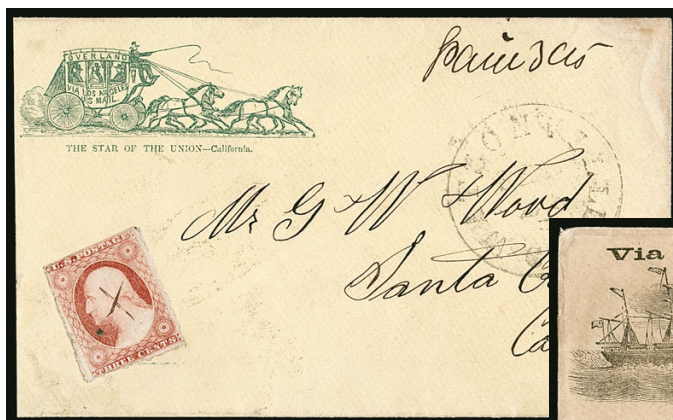 paid 3cts
OVERLAND
VIA LOS ANGELES
U.S MAIL
THE STAR OF THE UNION—California.
Mr G W Wood
Santa
Ca
U.S. POSTAGE
THREE CENTS
Via